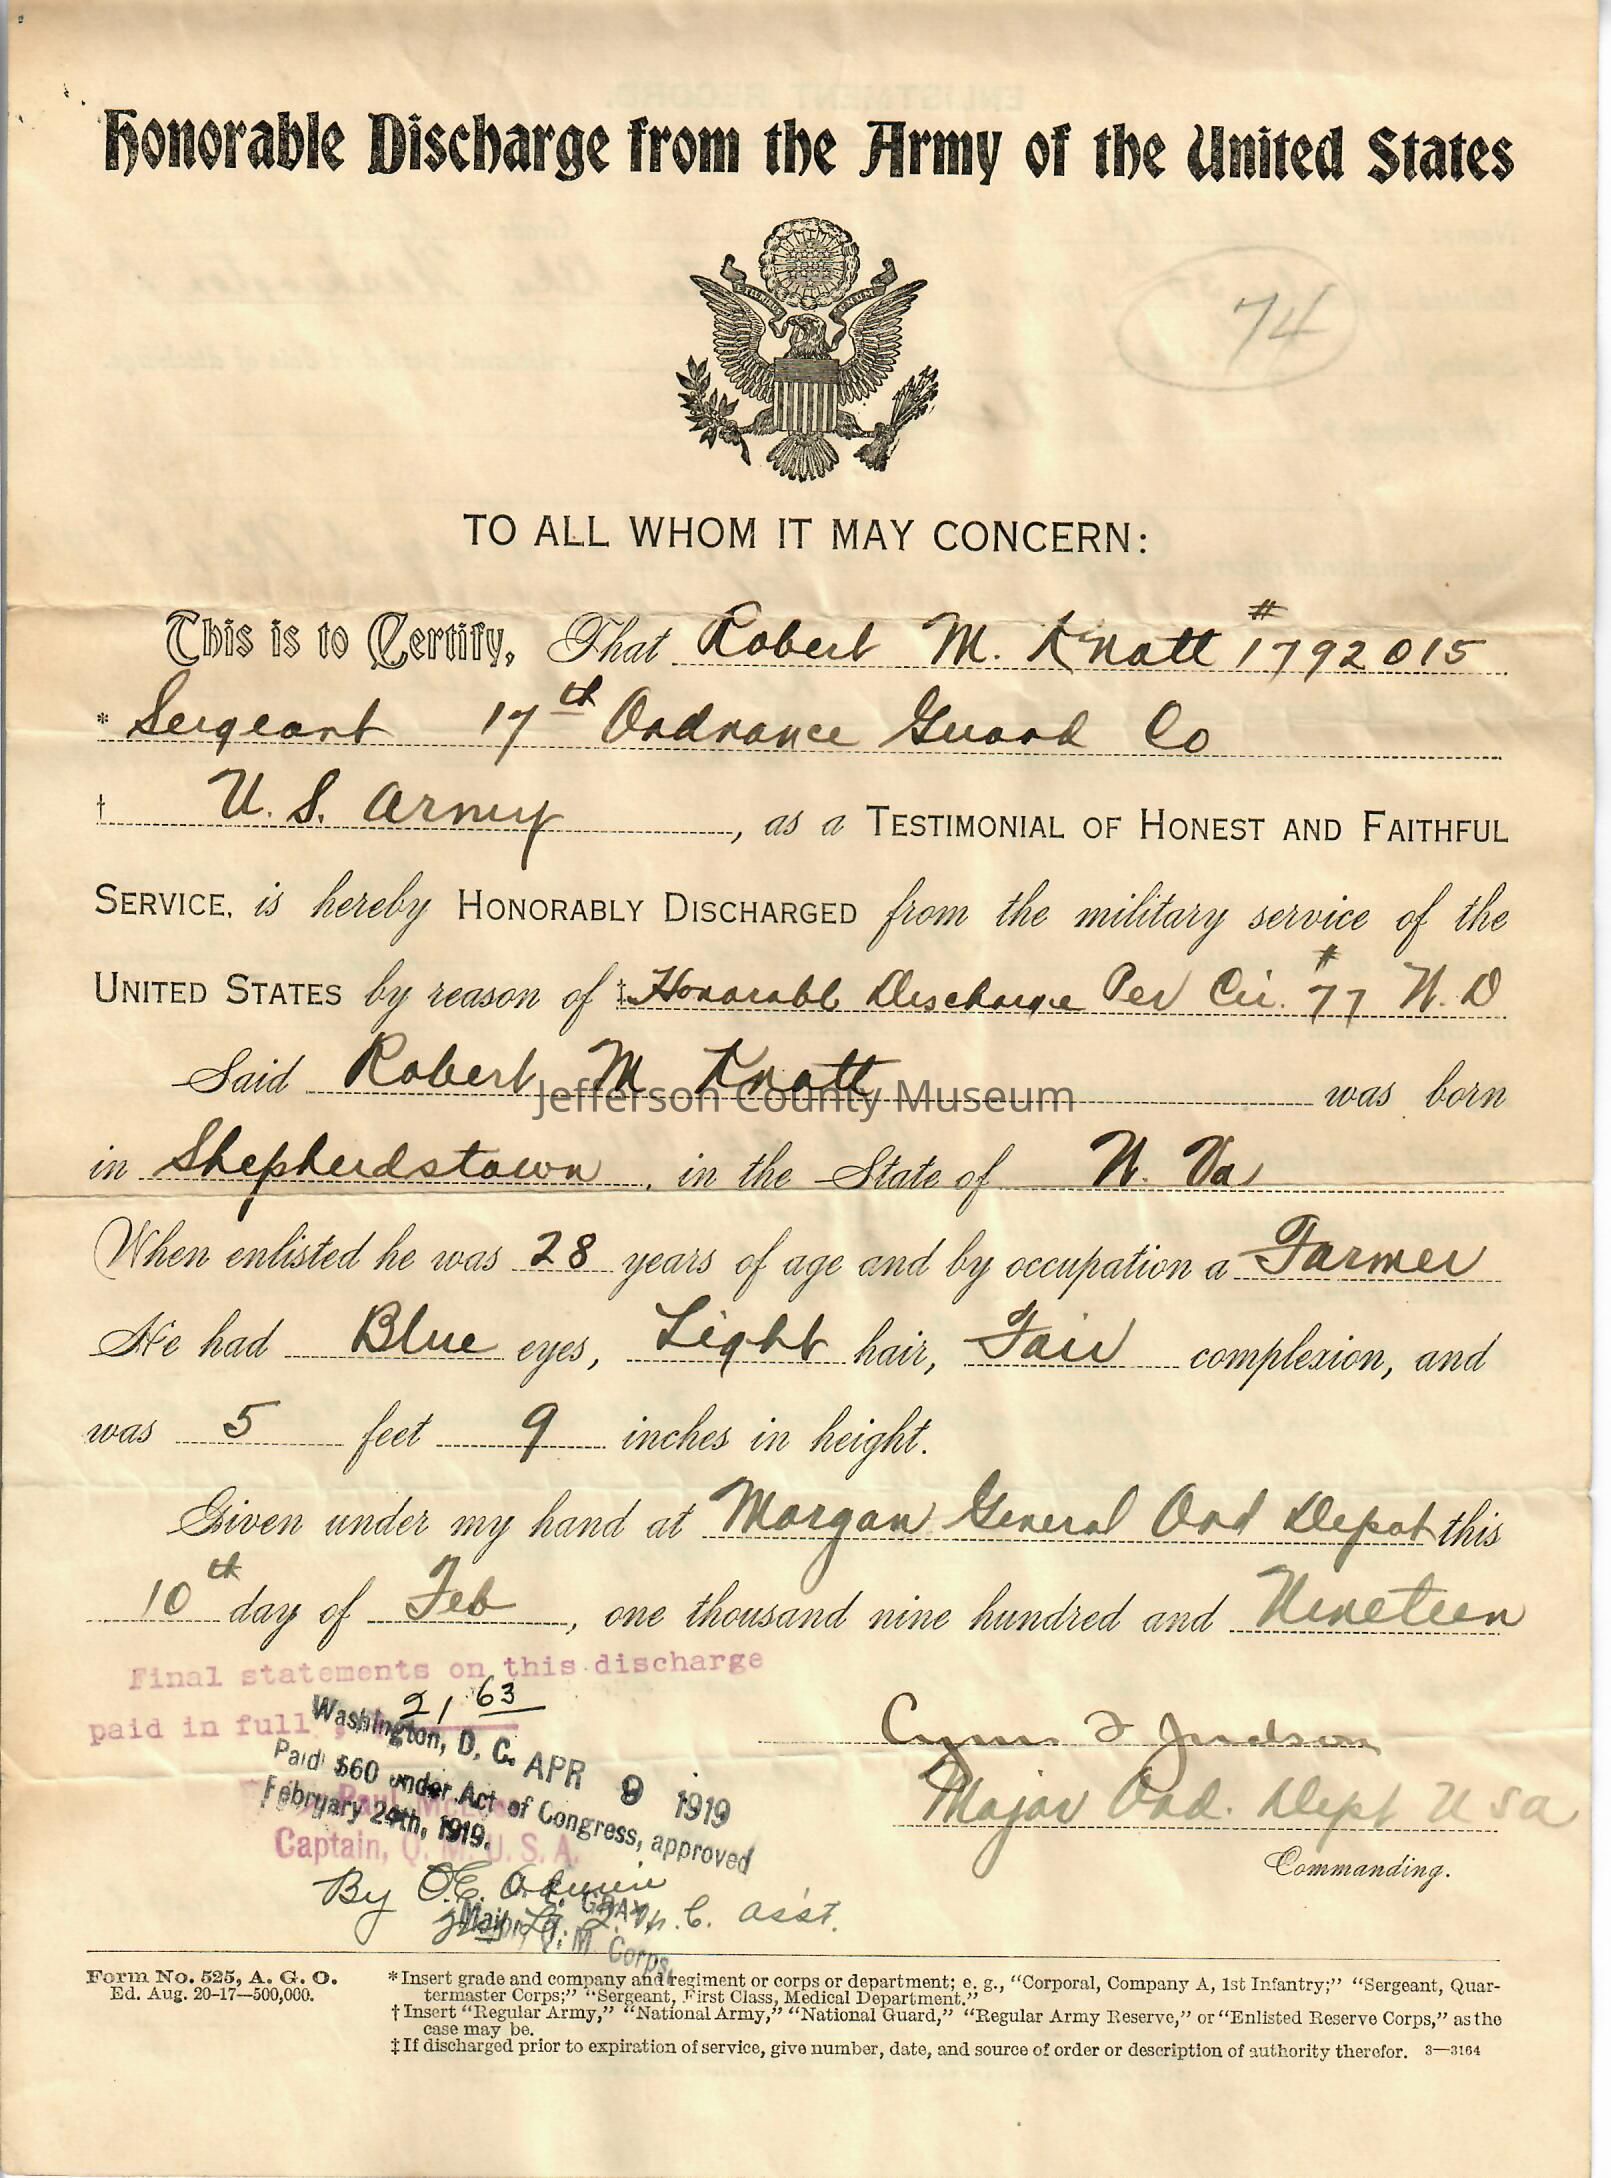 Honorable Discharge from the Army of the United States
74
TO ALL WHOM IT MAY CONCERN:
This is to Certify, That Robert M. Knott #1792015
* Sergeant 17th Ordnance Guard Co
† U. S. Army, as a TESTIMONIAL OF HONEST AND FAITHFUL
SERVICE, is hereby HONORABLY DISCHARGED from the military service of the
UNITED STATES by reason of ‡ Honorabl Discharge Per Cir. #77 W. D
Said Robert M Knott was born
Jefferson County Museum
in Shepherdstown, in the State of W. Va
When enlisted he was 28 years of age and by occupation a Farmer
He had Blue eyes, Light hair, Fair complexion, and
was 5 feet 9 inches in height.
Given under my hand at Morgan General Ord Depot this
10th day of Feb, one thousand nine hundred and Nineteen
Final statements on this discharge
paid in full, 21 63
Washington, D. C. APR 9 1919
Paid $60 under Act of Congress, approved
February 24th, 1919.
Captain, Q. M. U. S. A.
By
Q. M. C. asst.
Q. M. Corps.
Cyrus F Judson
Major Ord. Dept U S A
Commanding.
Form No. 525, A. G. O.
Ed. Aug. 20-17—500,000.
*Insert grade and company and regiment or corps or department; e. g., "Corporal, Company A, 1st Infantry;" "Sergeant, Quar-
termaster Corps;" "Sergeant, First Class, Medical Department."
†Insert "Regular Army," "National Army," "National Guard," "Regular Army Reserve," or "Enlisted Reserve Corps," as the
case may be.
‡If discharged prior to expiration of service, give number, date, and source of order or description of authority therefor. 3—3164